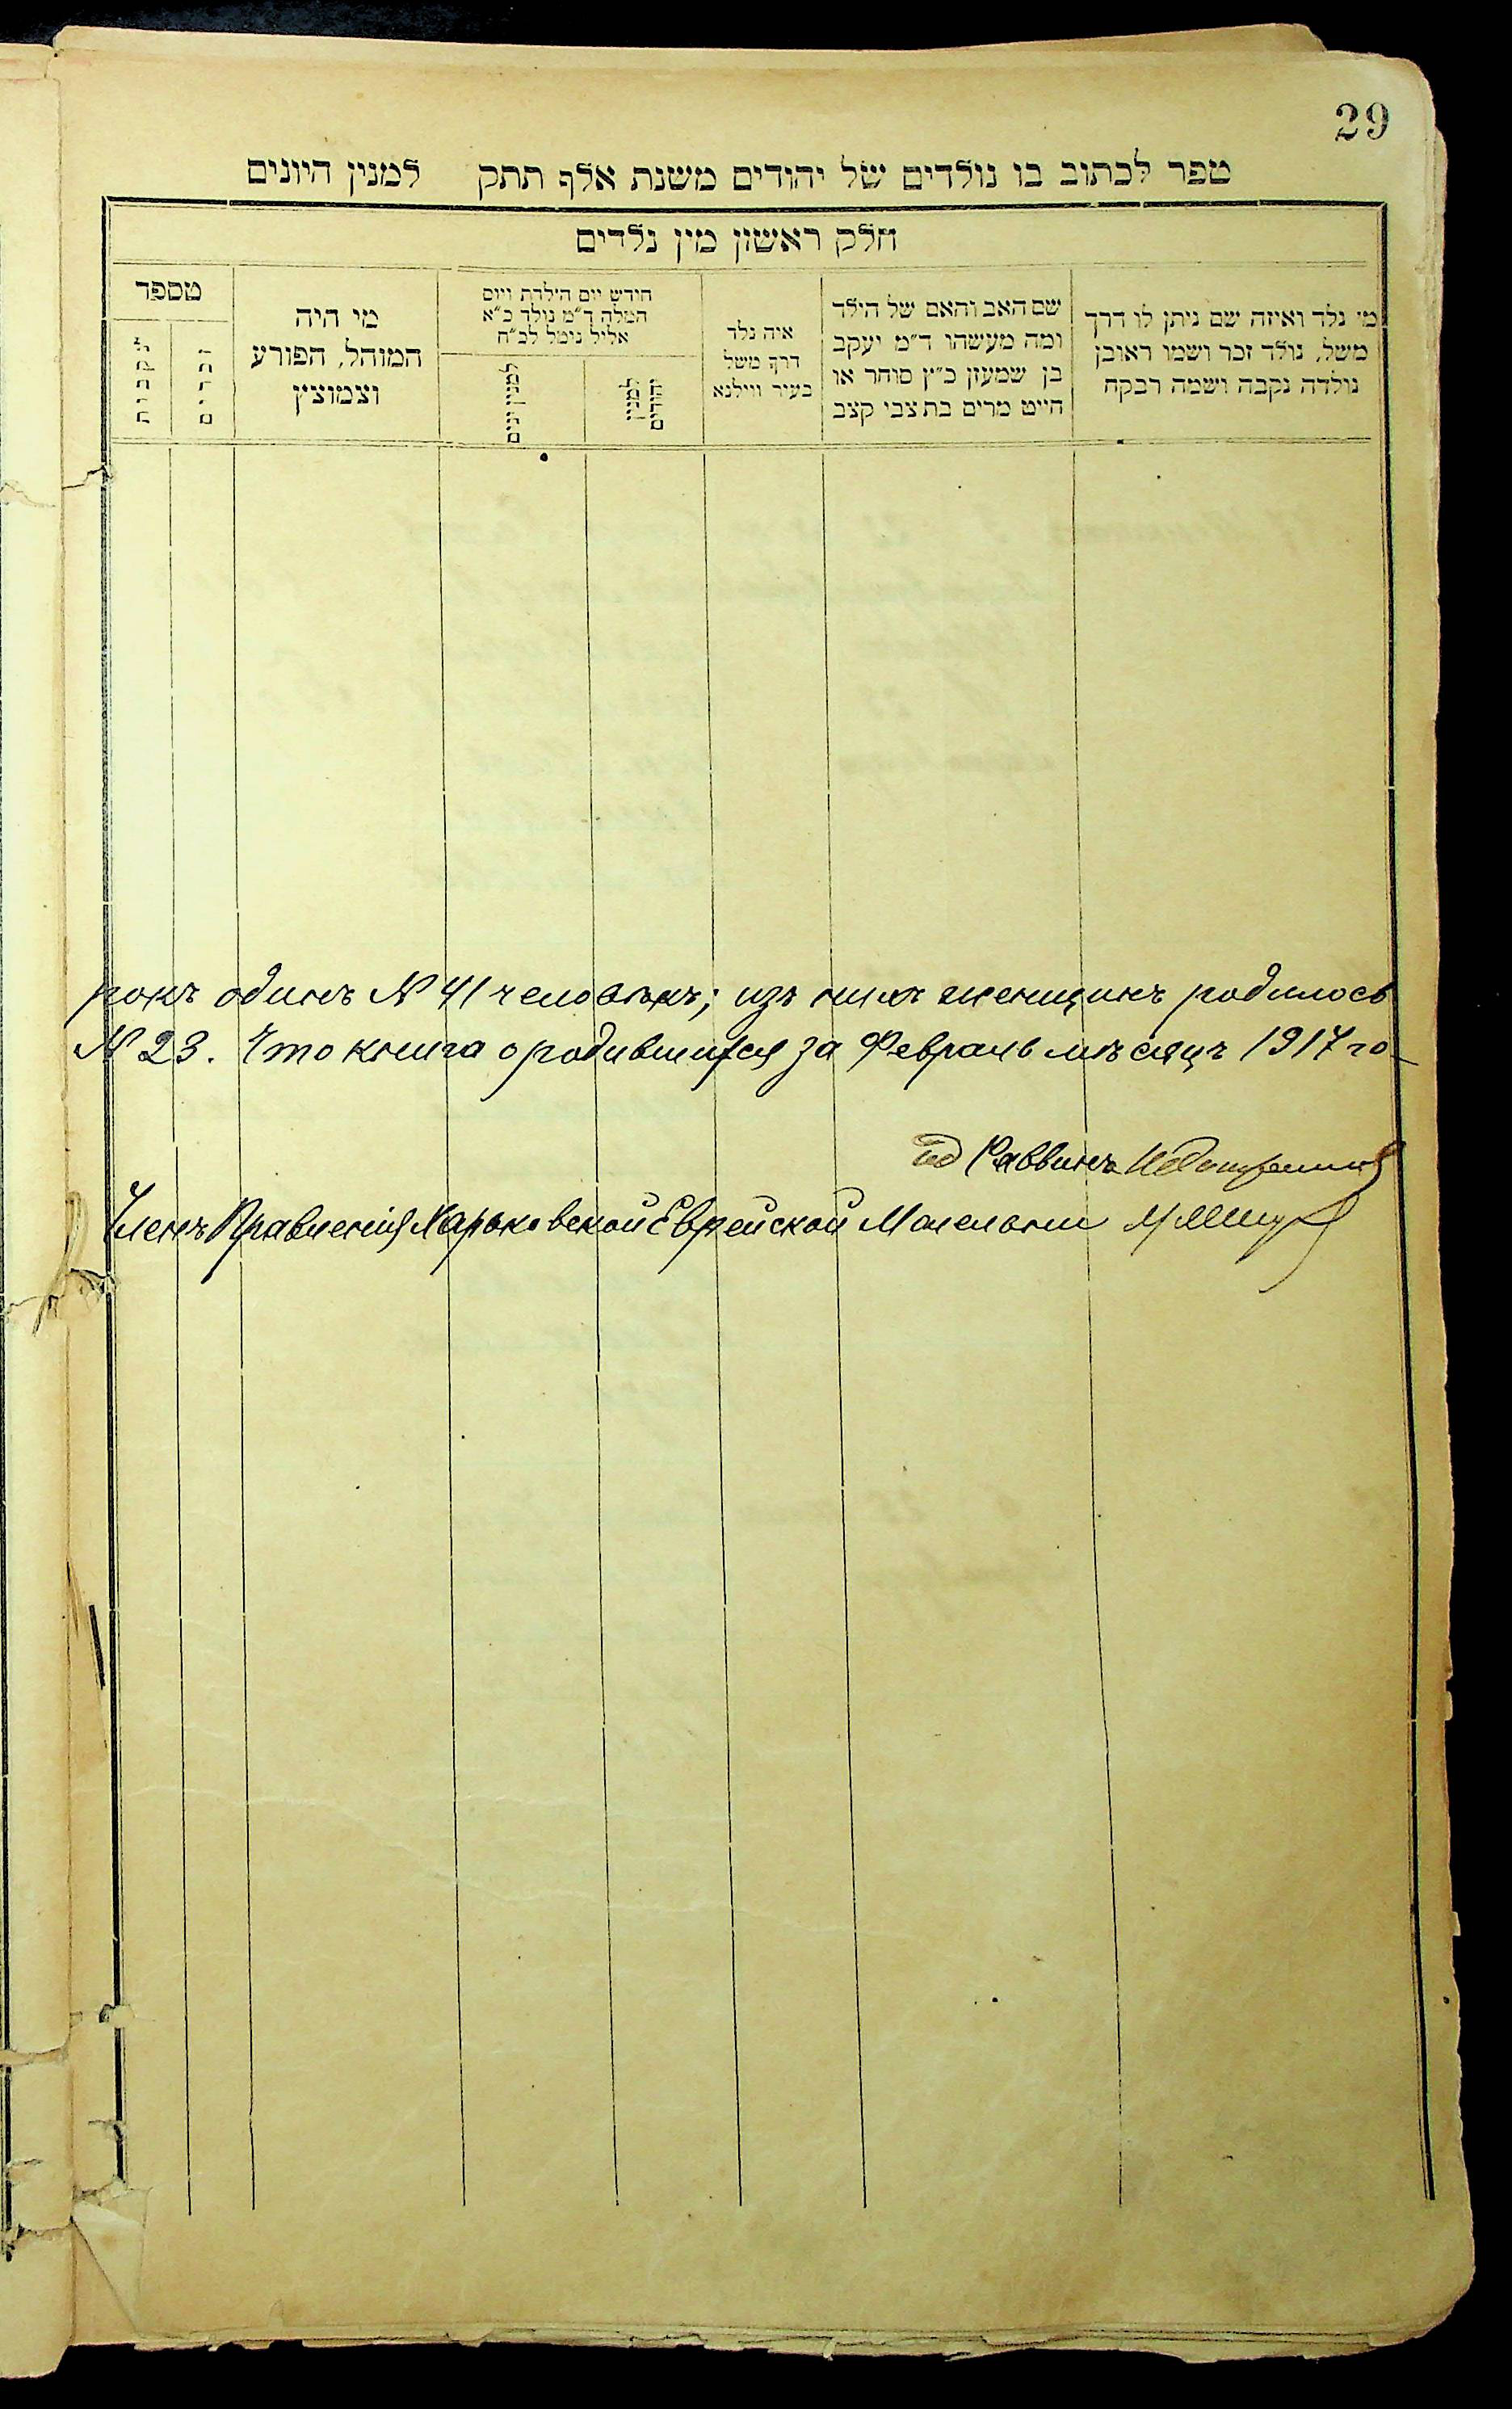 29
ספר לכתוב בו נולדים של יהודים משנת אלף תתק למנין היונים
חלק ראשון מין נלדים
מי נלד ואיזה שם ניתן לו דרך
משל, נולד זכר ושמו ראובן
נולדה נקבה ושמה רבקה
שם האב והאם של הילד
ומה מעשהו ד״מ יעקב
בן שמעון כ״ץ סוחר או
חייט מרים בת צבי קצב
איה נלד
דרך משל
בעיר ווילנא
חידש יום הילדת ויום
המלה ד״מ נולד כ״א
אליל נימל לכ״ח
למנין יהודים
למנין יונים
מי היה
המוהל, הפורע
וצמוצץ
מספר
זכרים
נקבות
рокъ одинъ № 41 человѣкъ; изъ нихъ женщинъ родилось
№ 23. Что книга о родившихся за Февраль мѣсяцъ 1917 го-
Раввинъ
Членъ Правленія Харьковской Еврейской Молельни